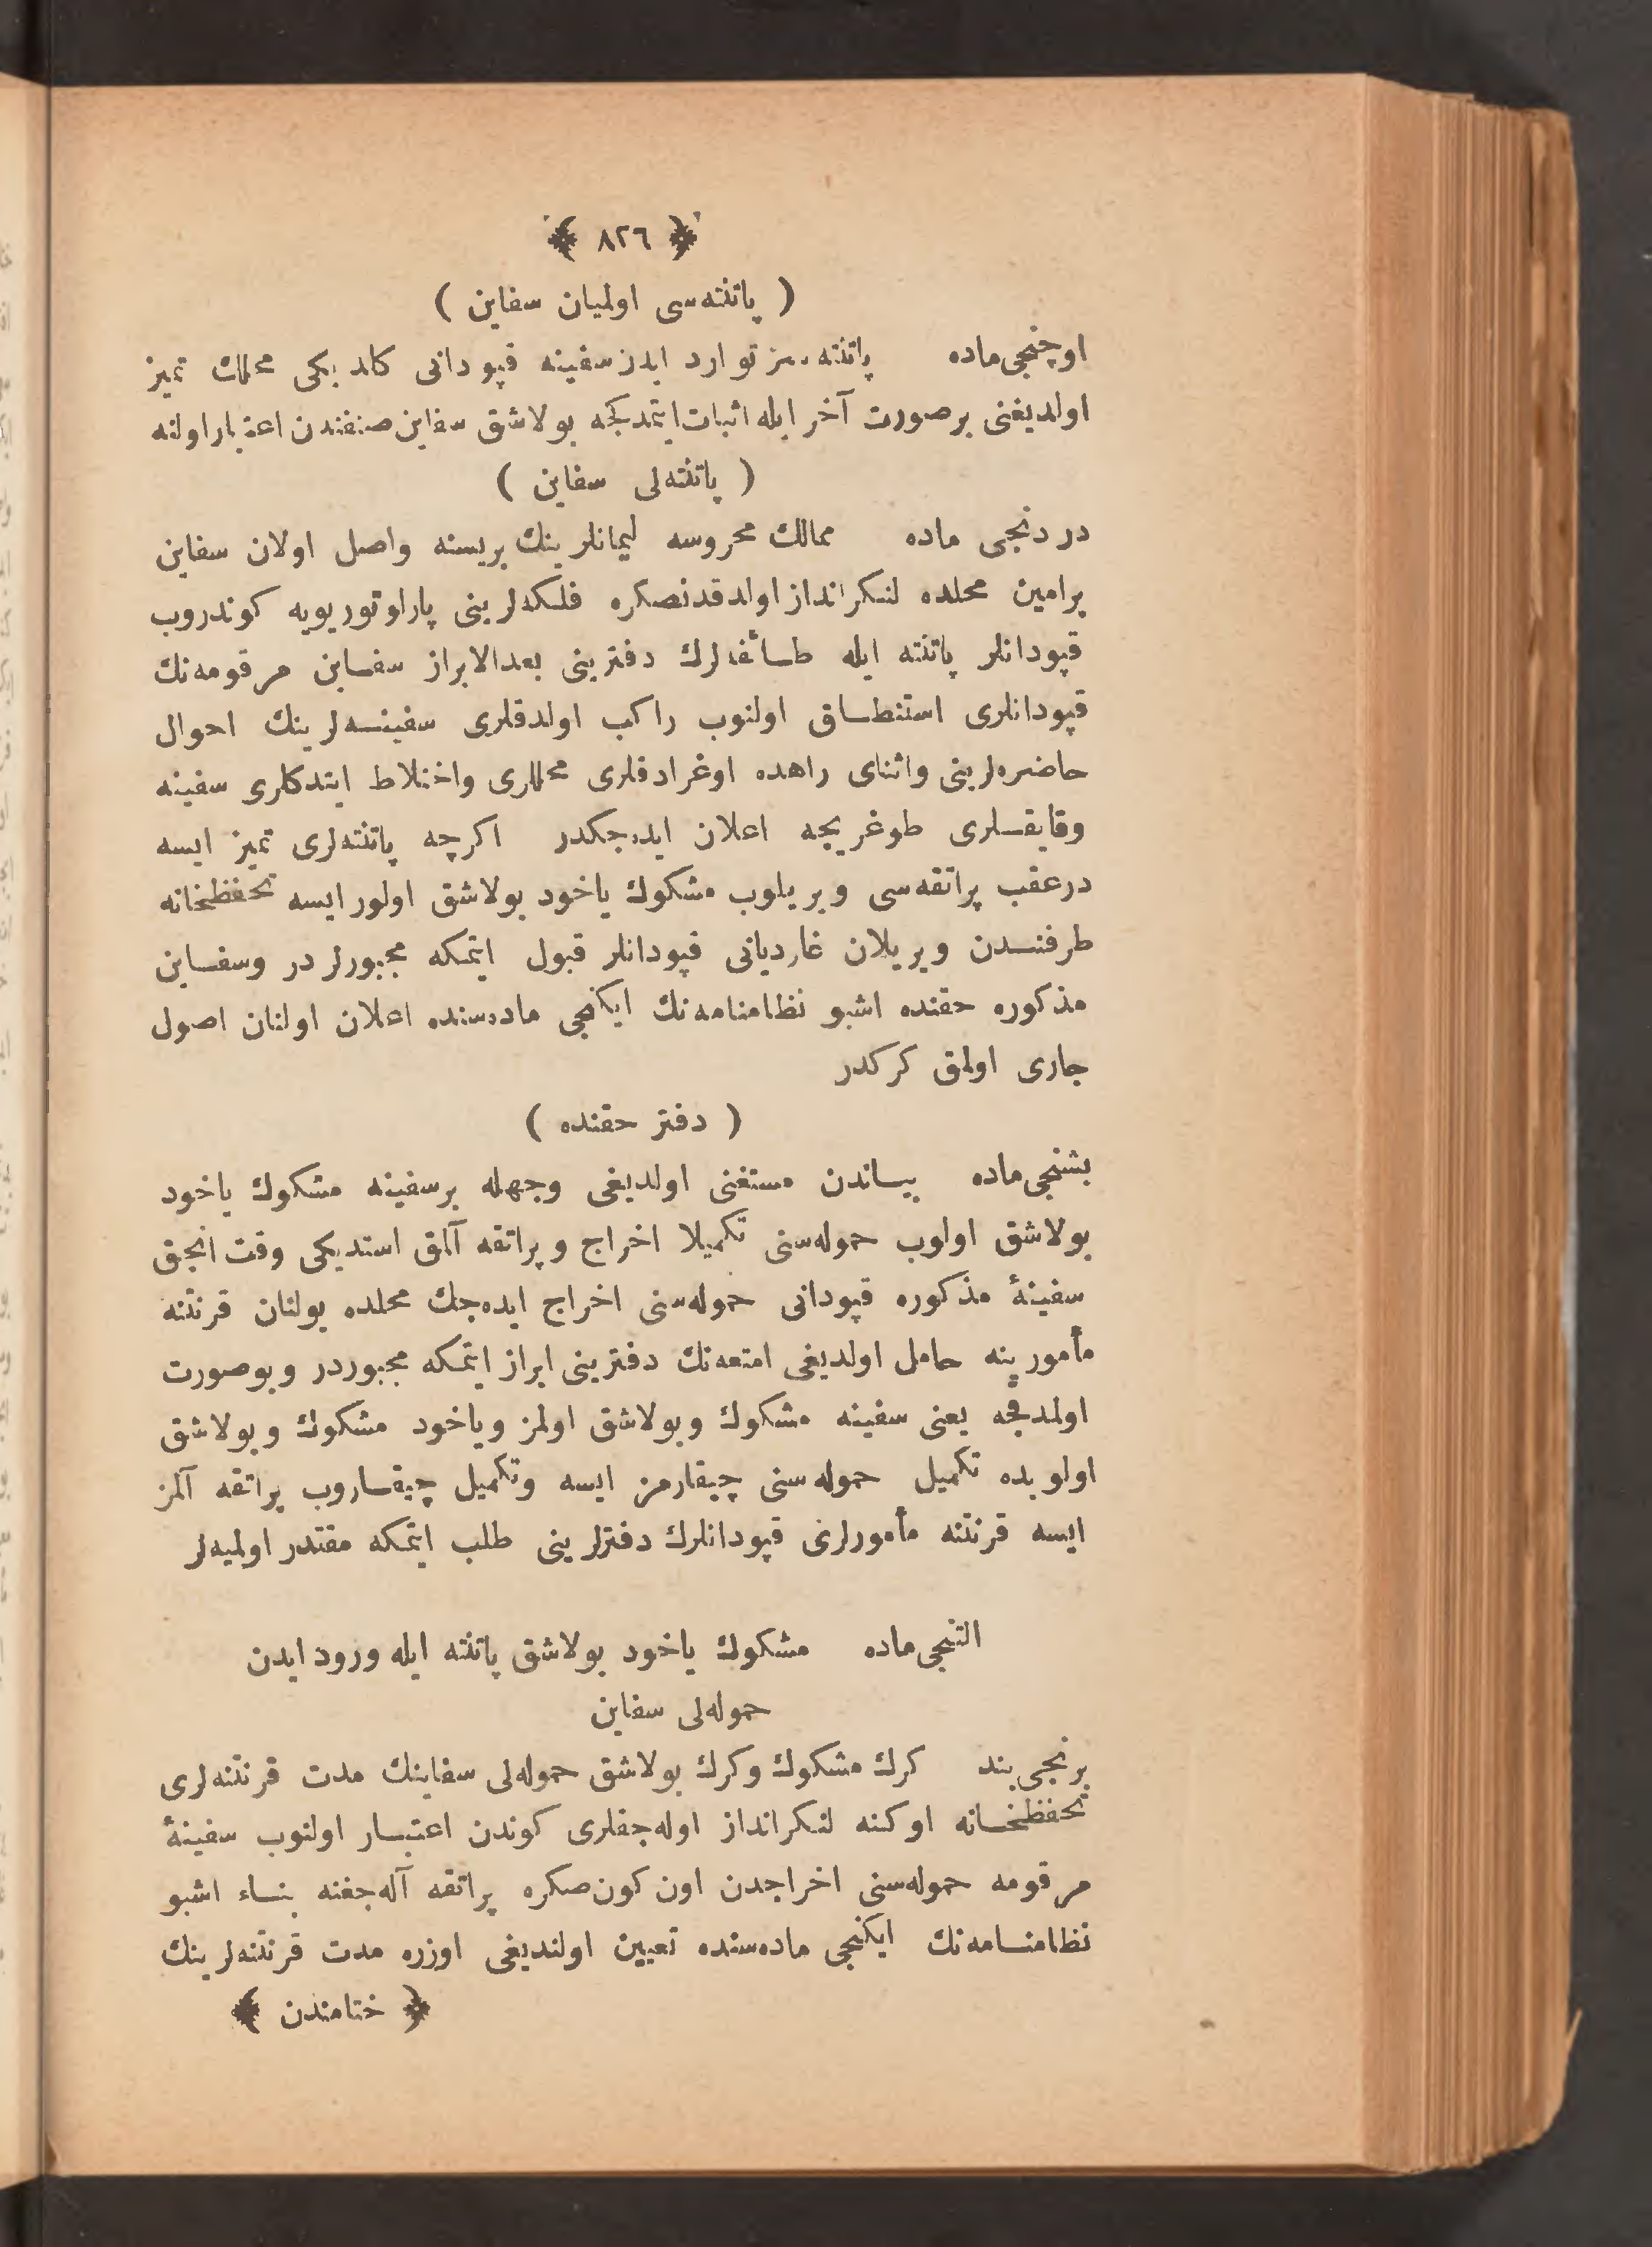 ﴿ ٨٢٦ ﴾
( پاتنته‌سی اولمیان سفاین )
اوچنجی ماده پاتنته‌سز توارد ایدن سفینه قپودانی کلدیکی محللك تمیز
اولدیغنی برصورت آخر ایله اثبات ایتمدکجه بولاشق سفاین صنفندن اعتبار اولنه
( پاتنته‌لی سفاین )
دردنجی ماده ممالك محروسه لیمانلرینك بریسنه واصل اولان سفاین
برامین محلده لنکرانداز اولدقدنصکره فلکه‌لرینی پاراوتوریویه کوندروب
قپودانلر پاتنته ایله طائفه‌لرك دفترینی بعدالابراز سفاین مرقومه‌نك
قپودانلری استنطاق اولنوب راکب اولدقلری سفینه‌لرینك احوال
حاضره‌لرینی واثنای راهده اوغرادقلری محللری واختلاط ایتدکلری سفینه
وقایقلری طوغریجه اعلان ایده‌جکدر اکرچه پاتنته‌لری تمیز ایسه
درعقب پراتقه‌سی ویریلوب مشکوك یاخود بولاشق اولور ایسه تحفظخانه
طرفندن ویریلان غاردیانی قپودانلر قبول ایتمکه مجبورلر در وسفاین
مذکوره حقنده اشبو نظامنامه‌نك ایکنجی ماده‌سنده اعلان اولنان اصول
جاری اولمق کرکدر
( دفتر حقنده )
بشنجی ماده بیاندن مستغنی اولدیغی وجهله برسفینه مشکوك یاخود
بولاشق اولوب حموله‌سنی تکمیلا اخراج وپراتقه آلمق استدیکی وقت انجق
سفینهٔ مذکوره قپودانی حموله‌سنی اخراج ایده‌جك محلده بولنان قرنتنه
مأمورینه حامل اولدیغی امتعه‌نك دفترینی ابراز ایتمکه مجبوردر وبوصورت
اولمدقجه یعنی سفینه مشکوك وبولاشق اولمز ویاخود مشکوك وبولاشق
اولوبده تکمیل حموله‌سنی چیقارمز ایسه وتکمیل چیقاروب پراتقه آلمز
ایسه قرنتنه مأمورلری قپودانلرك دفترلرینی طلب ایتمکه مقتدر اولمیه‌لر
التنجی ماده مشکوك یاخود بولاشق پاتنته ایله ورود ایدن
حموله‌لی سفاین
برنجی بند کرك مشکوك وکرك بولاشق حموله‌لی سفاینك مدت قرنتنه‌لری
تحفظخانه اوکنه لنکرانداز اوله‌جقلری کوندن اعتبار اولنوب سفینهٔ
مرقومه حموله‌سنی اخراجدن اون کون صکره پراتقه آله‌جغنه بناء اشبو
نظامنامه‌نك ایکنجی ماده‌سنده تعیین اولندیغی اوزره مدت قرنتنه‌لرینك
﴿ ختامندن ﴾